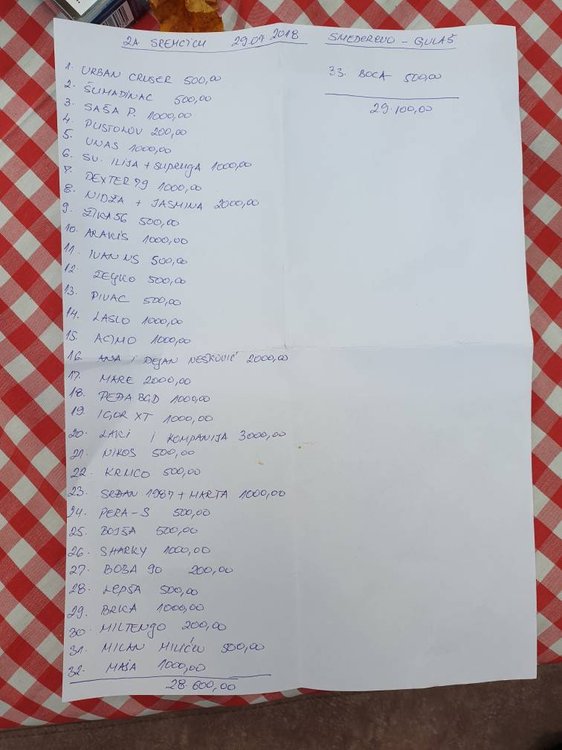 ZA SREMČICU 29.09.2018 SMEDEREVO - GULAŠ
1. URBAN CRUSER 500,00
2. ŠUMADINAC 500,00
3. SAŠA P. 1000,00
4. PUSTOLOV 200,00
5. UNAS 1000,00
6. SV. ILIJA + SUPRUGA 1000,00
7. DEXTER 99 1000,00
8. NIDŽA + JASMINA 2000,00
9. ŽIKA56 500,00
10. ARAKIS 1000,00
11. IVAN NS 500,00
12. DEJKO 500,00
13. PIVAC 500,00
14. LASLO 1000,00
15. ACIMO 1000,00
16. ANA I DEJAN NEŠKOVIĆ 2000,00
17. MARE 2000,00
18. PEĐA BGD 1000,00
19. IGOR XT 1000,00
20. LAKI I KOMPANIJA 3000,00
21. NIKOS 500,00
22. KRMCO 500,00
23. SRĐAN 1987 + MARTA 1000,00
24. PERA-S 500,00
25. BOJŠA 500,00
26. SHARKY 1000,00
27. BOBA 90 200,00
28. LEPŠA 500,00
29. BRKA 1000,00
30. MILTENGO 200,00
31. MILAN MILIĆU 500,00
32. MAŠA 1000,00
28.600,00
33. BOCA 500,00
29.100,00